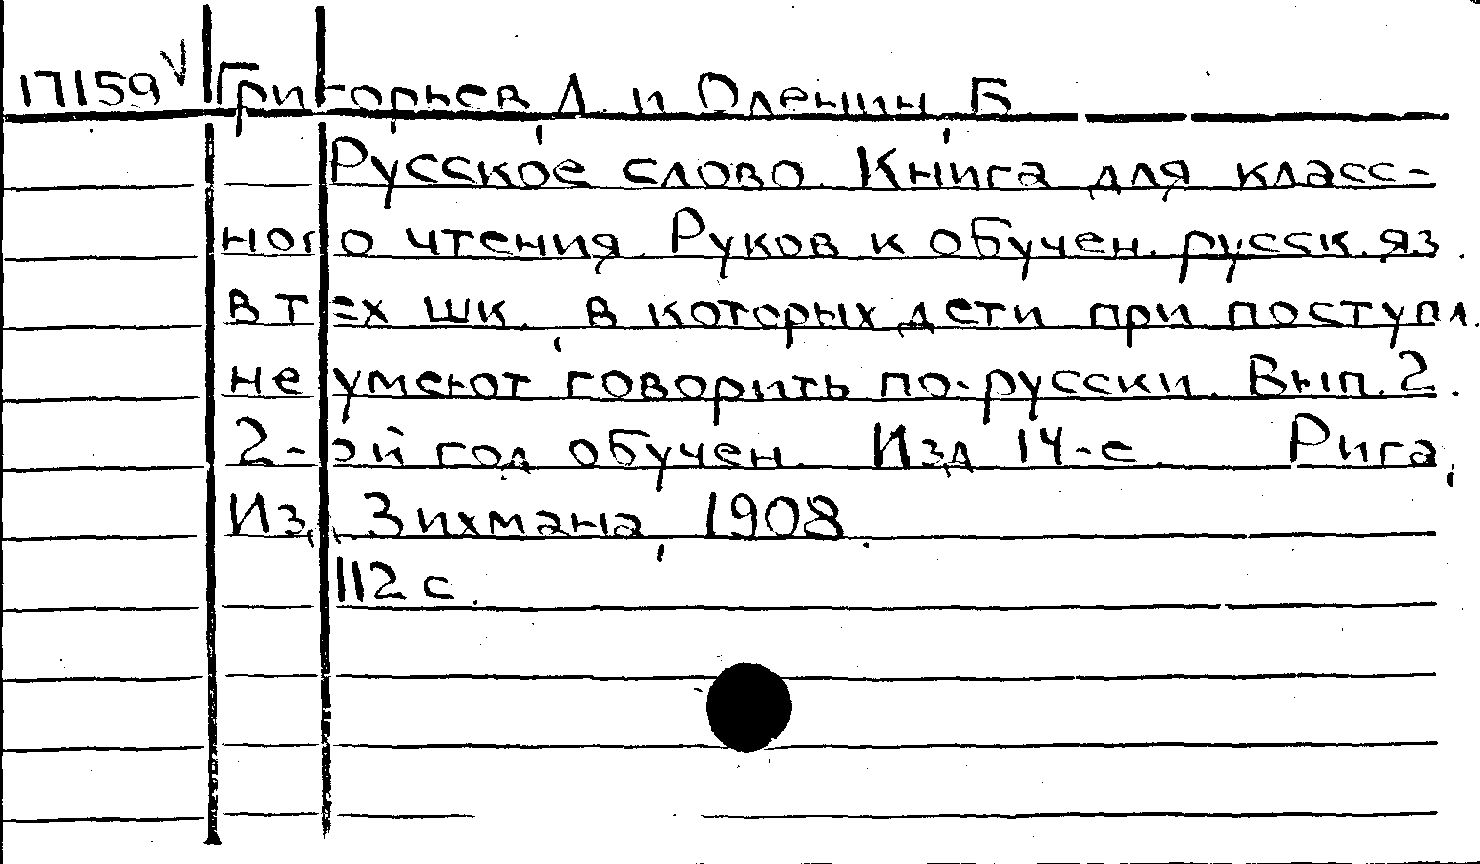 17159 Григорьев, Л. и Оленин, Б
Русское слово. Книга для класс-
ного чтения. Руков к обучен. русск. яз.
в тех шк., в которых дети при поступл.
не умеют говорить по-русски. Вып. 2.
2-ой год обучен. Изд 14-е. Рига,
Изд. Зихмана, 1908.
112 с.